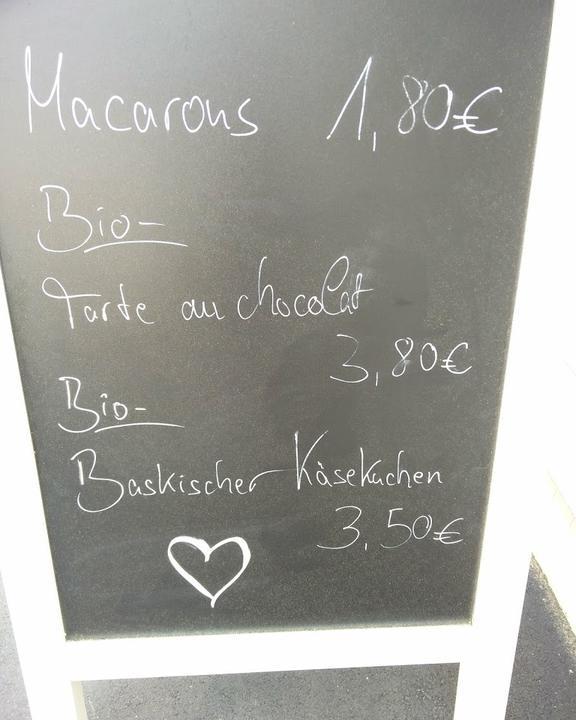 Macarons 1,80€
Bio-
Tarte au chocolat
3,80€
Bio-
Baskischer Käsekuchen
3,50€